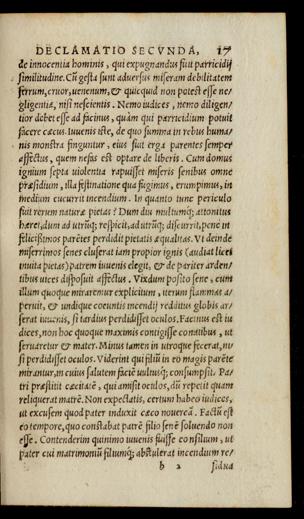 DECLAMATIO SECVNDA, 17
de innocentia hominis, qui expugnandus fuit parricidij
similitudine. Cũ gesta sunt aduersus miseram debilitatem
ferrum, cruor, uenenum, & quicquid non potest esse ne/
gligentia, nisi nescientis. Nemo iudices, nemo diligen/
tior debet esse ad facinus, quàm qui parricidium potuit
facere cæcus. Iuuenis iste, de quo summa in rebus huma/
nis monstra finguntur, eius fuit erga parentes semper
affectus, quem nefas est optare de liberis. Cum domus
ignium septa uiolentia rapuisset miseris senibus omne
præsidium, illa festinatione qua fugimus, erumpimus, in
medium cucurrit incendium. In quanto tunc periculo
fuit rerum natura pietas? Dum diu multumq; attonitus
hæret, dum ad utrũq; respicit, ad utrũq; discurrit, pene in
felicißimos parẽtes perdidit pietatis æqualitas. Vt deinde
miserrimos senes cluserat iam propior ignis (audiat licet
inuita pietas) patrem iuuenis elegit, & de pariter arden/
tibus uices disposuit affectus. Vixdum posito sene, cum
illum quoque mirarentur explicitum, iterum flammas a/
peruit, & undique coeuntis incendij redditus globis ar/
serat iuuenis, si tardius perdidisset oculos. Facinus est iu
dices, non hoc quoque maximis contigisse conatibus, ut
seruaretur & mater. Minus tamen in utroque fecerat, ni/
si perdidisset oculos. Viderint qui filiũ in eo magis parẽte
mirantur, in cuius salutem faciẽ uultusq; consumpsit. Pa/
tri præstitit cæcitatẽ, qui amisit oculos, dũ repetit quam
reliquerat matrẽ. Non expectatis, certum habeo iudices,
ut excusem quod pater induxit cæco nouercã. Factũ est
eo tempore, quo constabat patrẽ filio senẽ soluendo non
esse. Contenderim quinimo iuuenis fuisse consilium, ut
pater cui matrimoniũ filiumq; abstulerat incendium re/
b 2 sidua